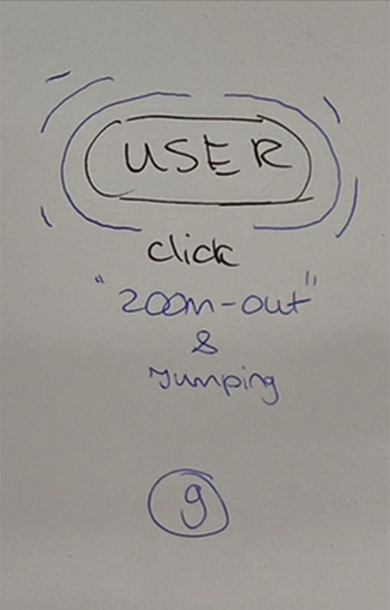 USER
click
"zoom-out"
&
Jumping
9